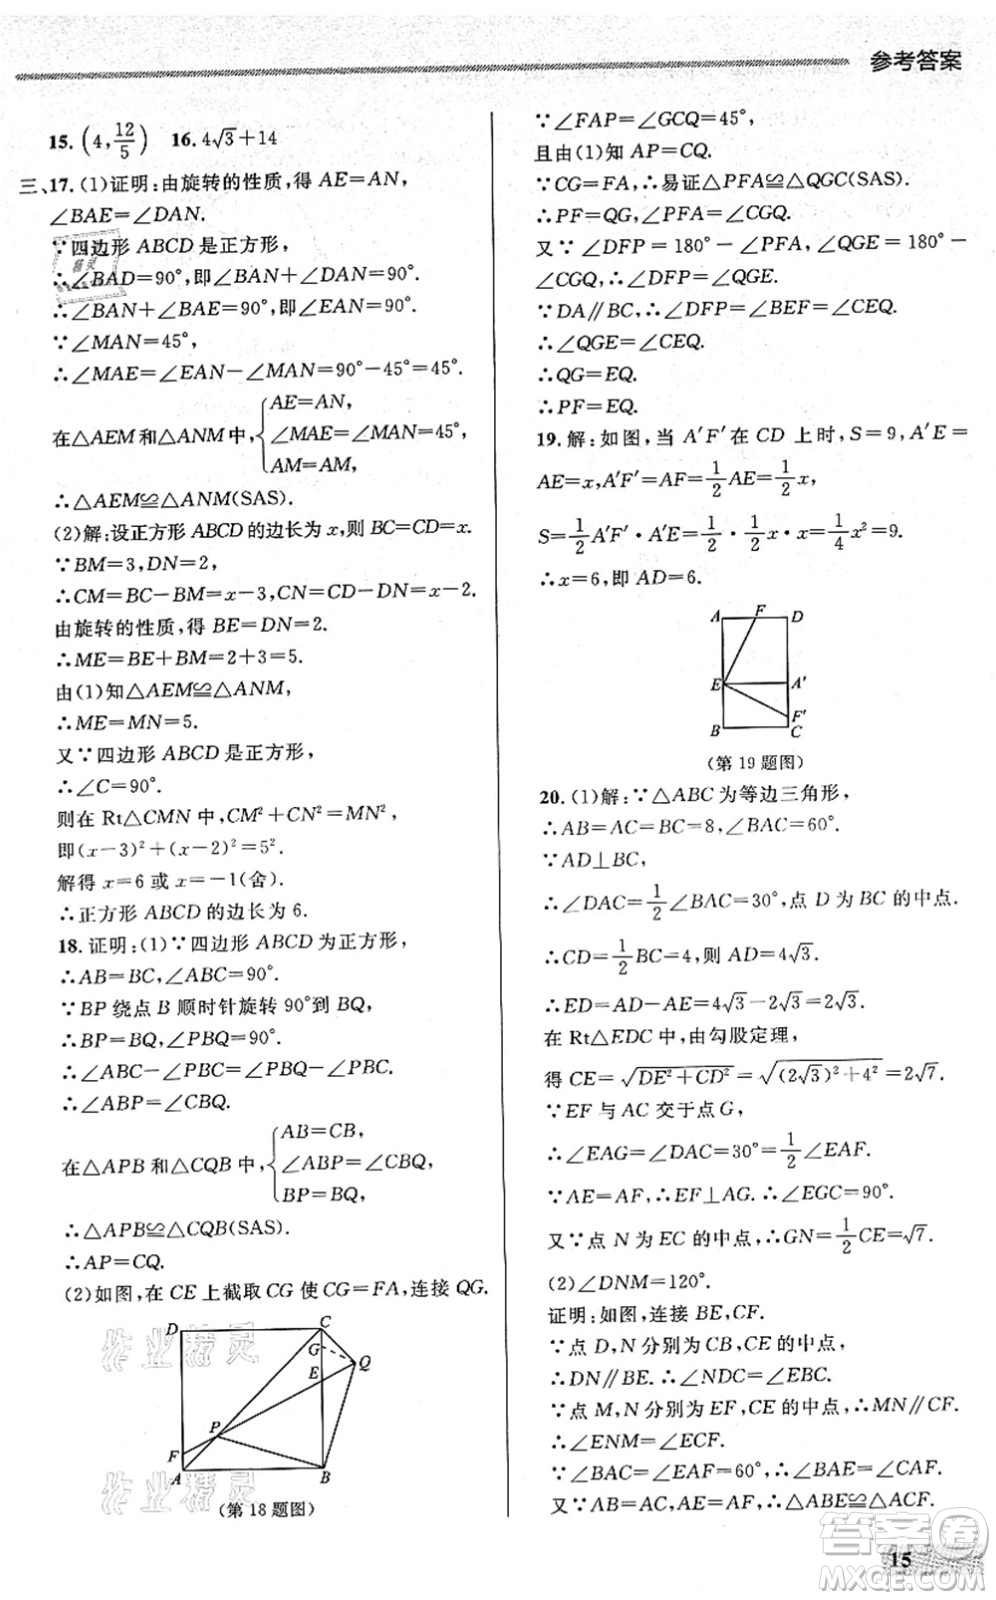 参考答案
15. (4, 12/5)  16. 4√3+14
三、17. (1)证明:由旋转的性质,得 AE=AN,
∠BAE=∠DAN.
∵四边形 ABCD 是正方形,
∴∠BAD=90°,即∠BAN+∠DAN=90°.
∴∠BAN+∠BAE=90°,即∠EAN=90°.
∵∠MAN=45°,
∴∠MAE=∠EAN-∠MAN=90°-45°=45°.
在△AEM 和△ANM 中, { AE=AN,
∠MAE=∠MAN,
AM=AM,
∴△AEM≌△ANM(SAS).
(2)解:设正方形 ABCD 的边长为 x,则 BC=CD=x.
∵BM=3,DN=2,
∴CM=BC-BM=x-3,CN=CD-DN=x-2.
由旋转的性质,得 BE=DN=2.
∴ME=BE+BM=2+3=5.
由(1)知△AEM≌△ANM,
∴ME=MN=5.
又∵四边形 ABCD 是正方形,
∴∠C=90°.
则在 Rt△CMN 中,CM²+CN²=MN²,
即(x-3)²+(x-2)²=5².
解得 x=6 或 x=-1(舍).
∴正方形 ABCD 的边长为 6.
18. 证明:(1)∵四边形 ABCD 为正方形,
∴AB=BC,∠ABC=90°.
∵BP 绕点 B 顺时针旋转 90°到 BQ,
∴BP=BQ,∠PBQ=90°.
∴∠ABC-∠PBC=∠PBQ-∠PBC.
∴∠ABP=∠CBQ.
在△APB 和△CQB 中, { AB=CB,
∠ABP=∠CBQ,
BP=BQ,
∴△APB≌△CQB(SAS).
∴AP=CQ.
(2)如图,在 CE 上截取 CG 使 CG=FA,连接 QG.
D C
G Q
E
P
F
A B
(第 18 题图)
∵∠FAP=∠GCQ=45°,
且由(1)知 AP=CQ.
∵CG=FA,∴易证△PFA≌△QGC(SAS).
∴PF=QG,∠PFA=∠CGQ.
又∵∠DFP=180°-∠PFA,∠QGE=180°-
∠CGQ,∴∠DFP=∠QGE.
∵DA∥BC,∴∠DFP=∠CEQ.
∴∠QGE=∠CEQ.
∴QG=EQ.
∴PF=EQ.
19. 解:如图,当 A′F′在 CD 上时,S=9,A′E=
AE=x,A′F′=AF=1/2 AE=1/2 x,
S=1/2 A′F′·A′E=1/2×1/2 x·x=1/4 x²=9.
∴x=6,即 AD=6.
A F D
E A′
F′
B C
(第 19 题图)
20. (1)解:∵△ABC 为等边三角形,
∴AB=AC=BC=8,∠BAC=60°.
∵AD⊥BC,
∴∠DAC=1/2∠BAC=30°,点 D 为 BC 的中点.
∴CD=1/2 BC=4,则 AD=4√3.
∴ED=AD-AE=4√3-2√3=2√3.
在 Rt△EDC 中,由勾股定理,
得 CE=√(DE²+CD²)=√((2√3)²+4²)=2√7.
∵EF 与 AC 交于点 G,
∴∠EAG=∠DAC=30°=1/2∠EAF.
∵AE=AF,∴EF⊥AG.∴∠EGC=90°.
又∵点 N 为 EC 的中点,∴GN=1/2 CE=√7.
(2)∠DNM=120°.
证明:如图,连接 BE,CF.
∵点 D,N 分别为 CB,CE 的中点,
∴DN∥BE.∴∠NDC=∠EBC.
∵点 M,N 分别为 EF,CE 的中点,∴MN∥CF.
∴∠ENM=∠ECF.
∵∠BAC=∠EAF=60°,∴∠EAB=∠FAC.
又∵AB=AC,AE=AF,∴△ABE≌△ACF.
15
答案卷
作业精灵
作业精灵
精灵